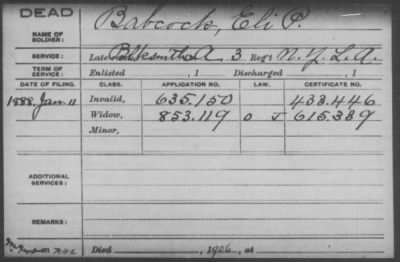 DEAD
NAME OF SOLDIER: Babcock, Eli P.
SERVICE: Late Blksmith A 3 Reg't N.Y.L.A.
TERM OF SERVICE: Enlisted , 1 Discharged , 1
DATE OF FILING. CLASS. APPLICATION NO. LAW. CERTIFICATE NO.
1888. Jan. 11 Invalid, 635.150 433.446
Widow, 853.119 O J 615389
Minor,
ADDITIONAL SERVICES:
REMARKS:
Died , 1906, at